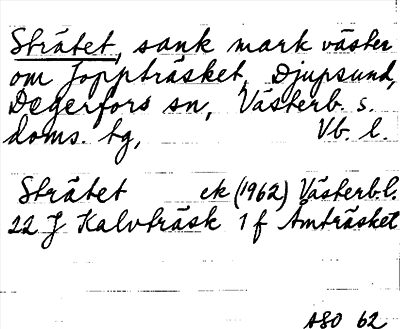 Strätet, sank mark väster
om Joppträsket, Djupsund,
Degerfors sn, Västerb. s.
doms. tg, Vb. l.
Strätet ek (1962) Västerb.l.
22 J Kalvträsk 1 f Åmträsket
ASO 62